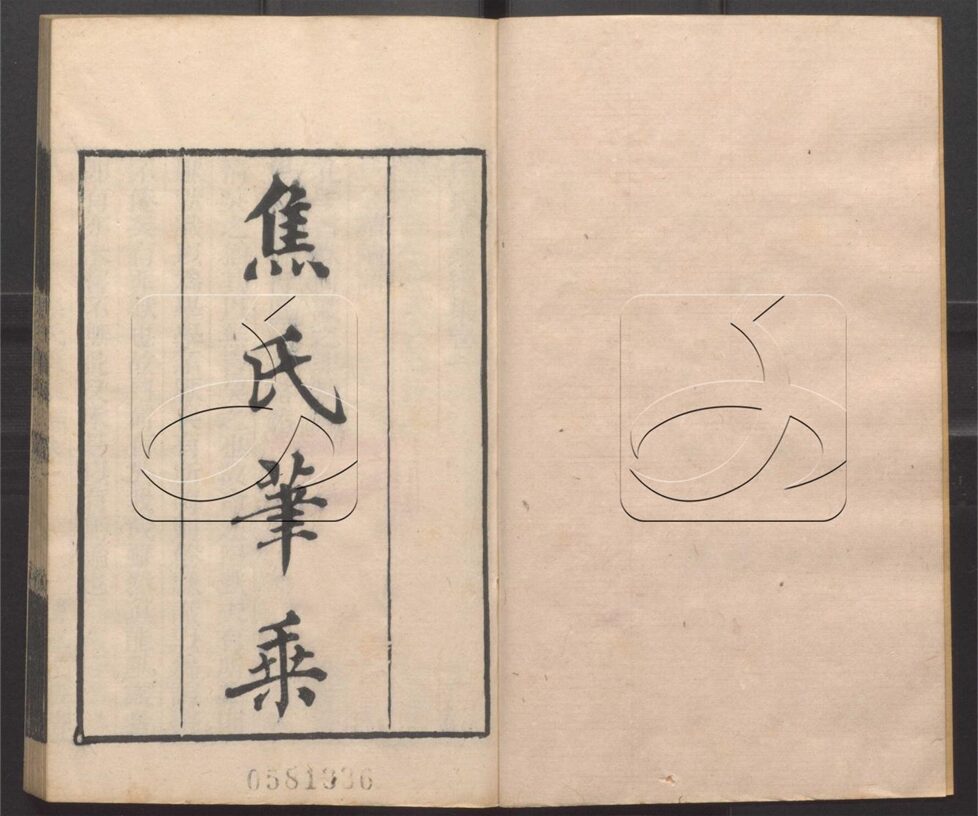 焦氏筆乗
0581336